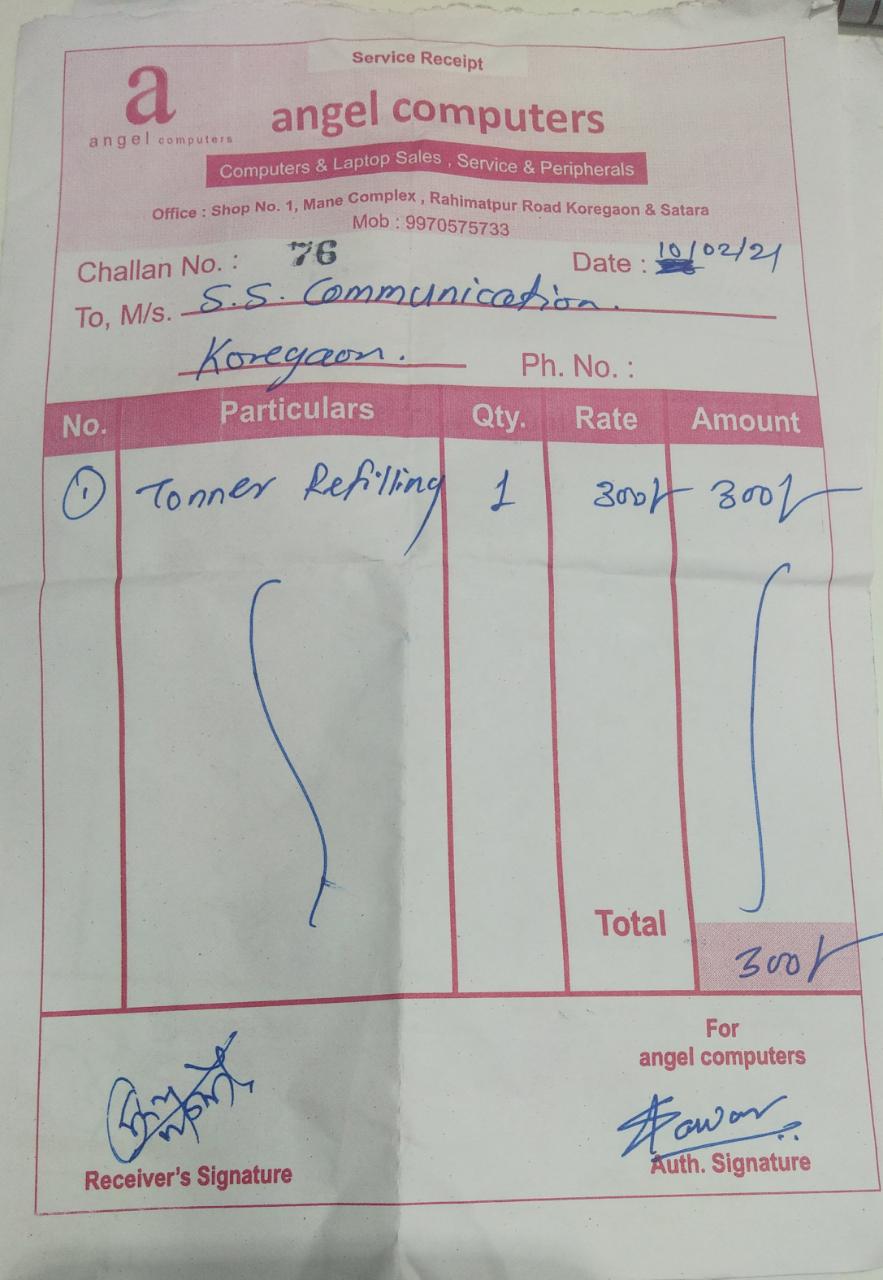 Service Receipt
a
angel computers
angel computers
Computers & Laptop Sales , Service & Peripherals
Office : Shop No. 1, Mane Complex , Rahimatpur Road Koregaon & Satara
Mob : 9970575733
Challan No. : 76 Date : 10/02/21
To, M/s. S.S. Communication.
Koregaon. Ph. No. :
No. Particulars Qty. Rate Amount
1 Tonner Refilling 1 300/- 300/-
Total
300/-
For
angel computers
Receiver's Signature
Auth. Signature